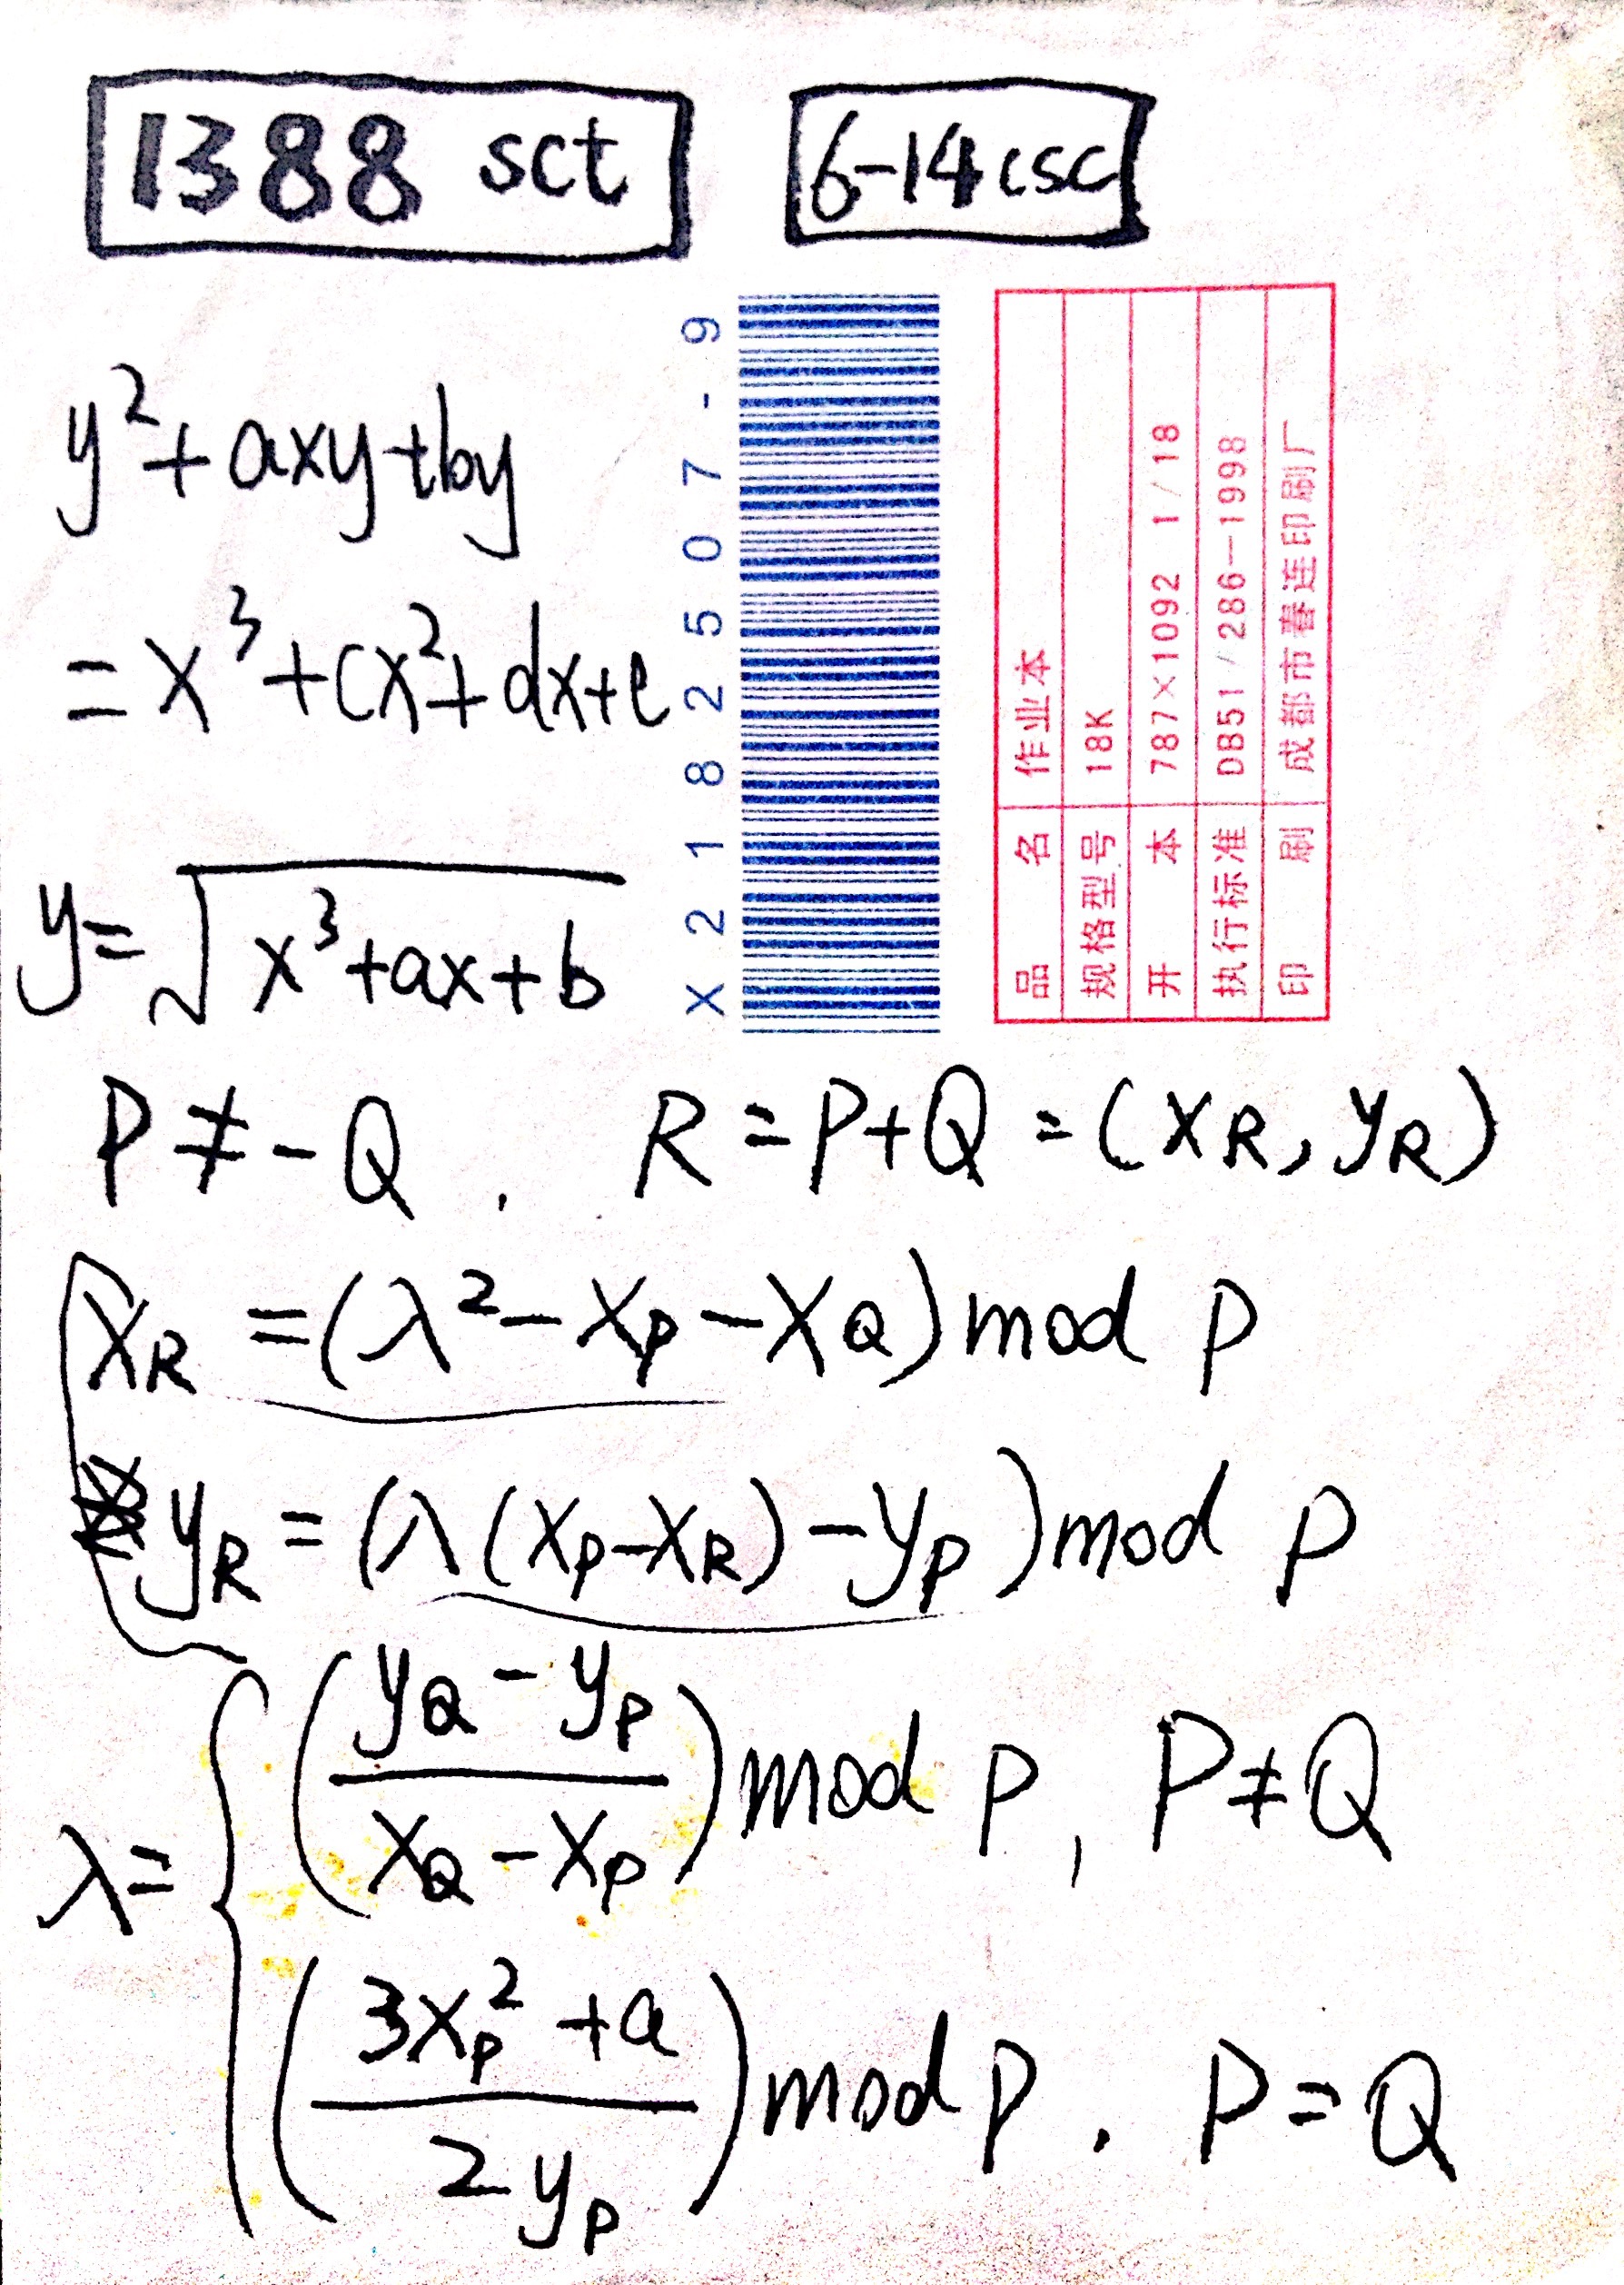 1388 sct
6-14 csc
y² + axy + by
= x³ + cx² + dx + e
y = √(x³ + ax + b)
X 2 1 8 2 5 0 7 - 9
品 名 作业本
规格型号 18K
开 本 787×1092 1/18
执行标准 DB51/286—1998
印 刷 成都市春连印刷厂
P ≠ - Q , R = P + Q = (x_R, y_R)
x_R = (λ² - x_P - x_Q) mod p
y_R = (λ(x_P - x_R) - y_P) mod p
λ = { ((y_Q - y_P) / (x_Q - x_P)) mod p, P ≠ Q
((3x_P² + a) / (2y_P)) mod p, P = Q